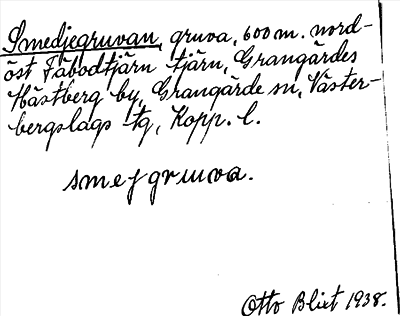 Smedjegruvan, gruva, 600 m. nord-
öst Fäbodtjärn tjärn, Grangärdes
Hästberg by, Grangärde sn, Väster-
bergslags tg, Kopp. l.
smejgruuva.
Otto Blixt 1938.